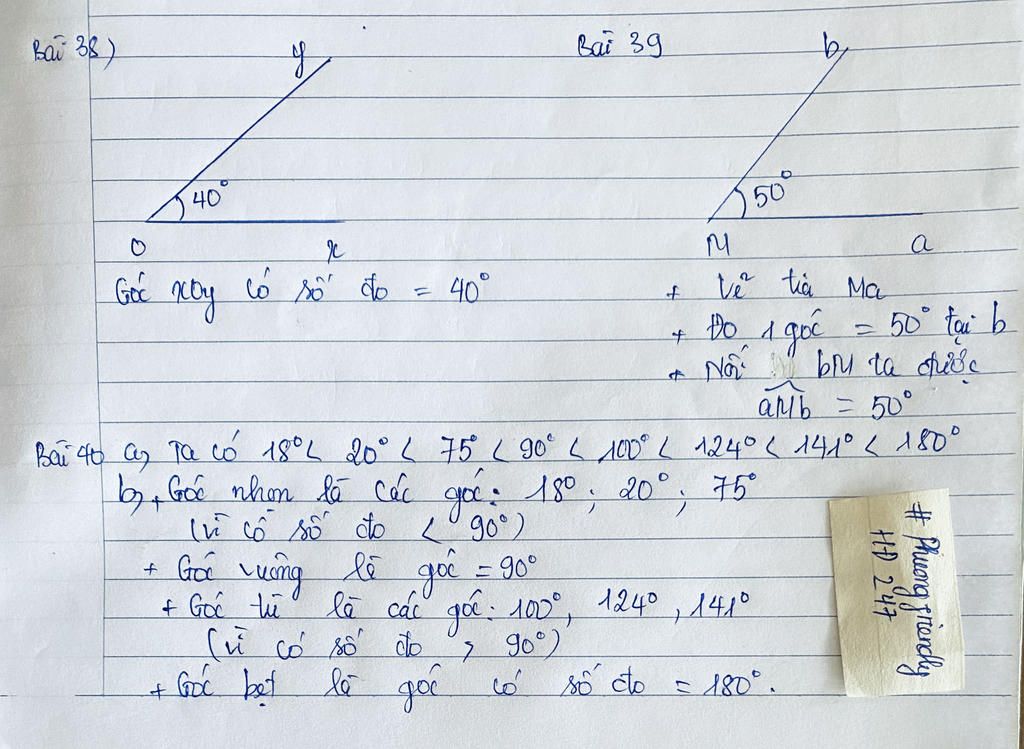 Bài 38)
y
40°
O
x
Góc xOy có số đo = 40°
Bài 39
b
50°
M
a
+ Vẽ tia Ma
+ Đo 1 góc = 50° tại b
+ Nối bM ta được
aMb = 50°
Bài 40 a, Ta có 18° < 20° < 75° < 90° < 100° < 124° < 141° < 180°
b, + Góc nhọn là các góc: 18°; 20°; 75°
(vì có số đo < 90°)
+ Góc vuông là góc = 90°
+ Góc tù là các góc: 100°, 124°, 141°
(vì có số đo > 90°)
+ Góc bẹt là góc có số đo = 180°.
# Phuongfriendly
HĐ 247